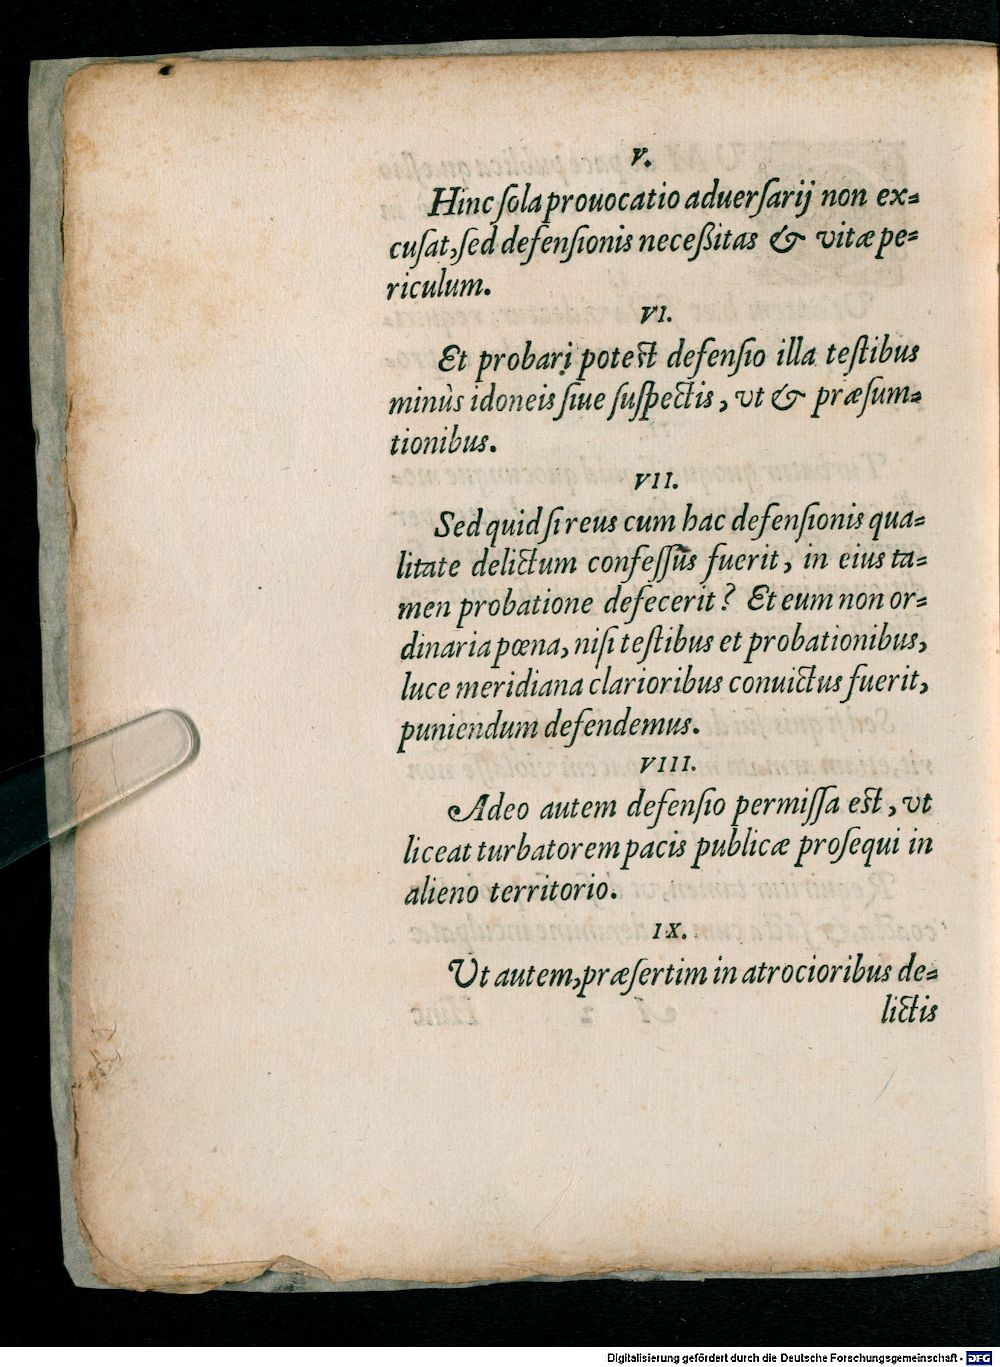 V.
Hinc ſola prouocatio aduerſarij non ex⸗
cuſat, ſed defenſionis neceßitas & vitæ pe⸗
riculum.
VI.
Et probari poteſt defenſio illa teſtibus
minùs idoneis ſiue ſuſpectis, vt & præſum⸗
tionibus.
VII.
Sed quid ſi reus cum hac defenſionis qua⸗
litate delictum confeſſus fuerit, in eius ta⸗
men probatione defecerit? Et eum non or⸗
dinaria pœna, niſi teſtibus et probationibus,
luce meridiana clarioribus conuictus fuerit,
puniendum defendemus.
VIII.
Adeo autem defenſio permiſſa eſt, vt
liceat turbatorem pacis publicæ proſequi in
alieno territorio.
IX.
Vt autem, præſertim in atrocioribus de⸗
lictis
Digitalisierung gefördert durch die Deutsche Forschungsgemeinschaft - DFG